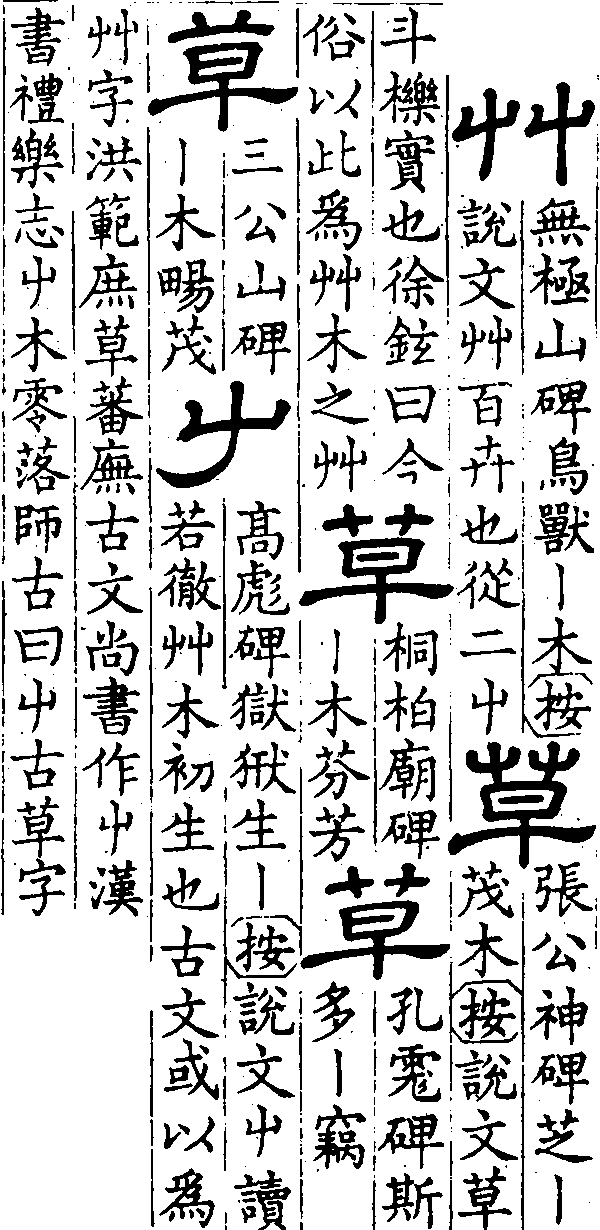 艸
無極山碑鳥獸丨木按
說文艸百卉也從二屮
草
張公神碑芝丨
茂木按說文草
斗櫟實也徐鉉曰今
俗以此為艸木之艸
草
桐柏廟碑
丨木芬芳
草
孔碑斯
多丨竊
草
三公山碑
丨木畼茂
屮
高彪碑獄犾生丨按說文屮讀
若徹艸木初生也古文或以為
艸字洪範庶草蕃廡古文尚書作屮漢
書禮樂志屮木零落師古曰屮古草字